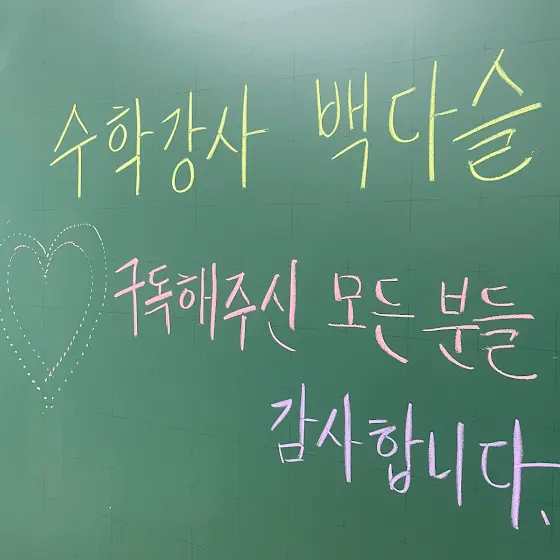 수학강사 백다슬
구독해주신 모든 분들
감사합니다.